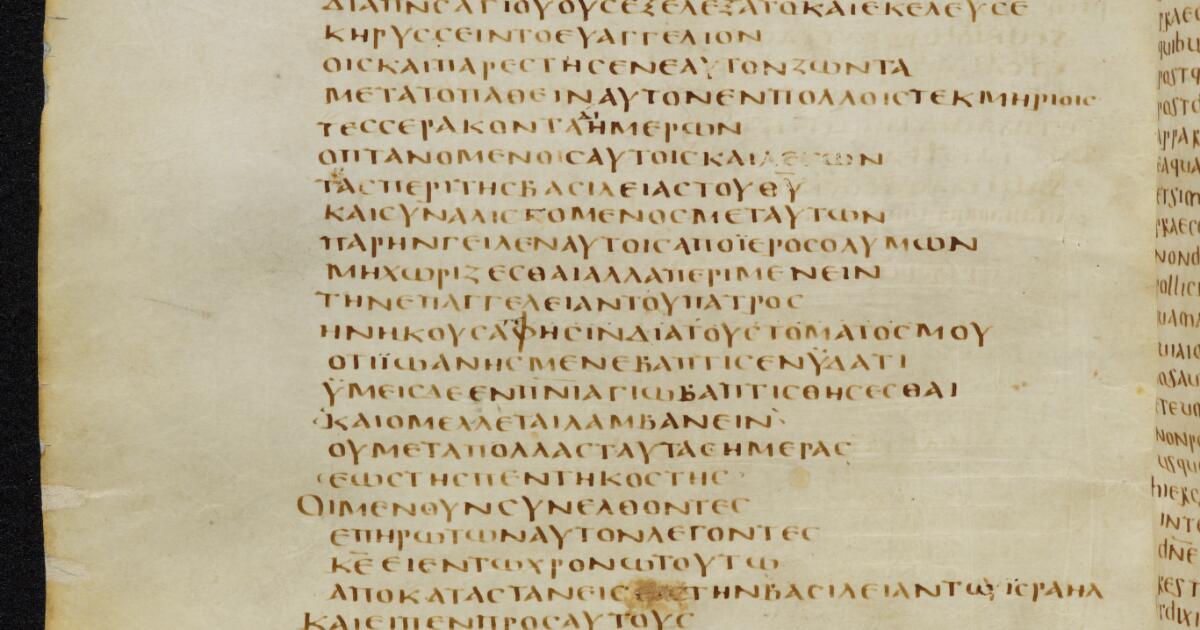 ΔΙΑΠΝΣΑΓΙΟΥΟΥΣΕΞΕΛΕΞΑΤΟΚΑΙΕΚΕΛΕΥΣΕ
ΚΗΡΥΣΣΕΙΝΤΟΕΥΑΓΓΕΛΙΟΝ
ΟΙΣΚΑΙΠΑΡΕΣΤΗΣΕΝΕΑΥΤΟΝΖΩΝΤΑ
ΜΕΤΑΤΟΠΑΘΕΙΝΑΥΤΟΝΕΝΠΟΛΛΟΙΣΤΕΚΜΗΡΙΟΙΣ
ΤΕΣΣΕΡΑΚΟΝΤΑΗΜΕΡΩΝ
ΟΠΤΑΝΟΜΕΝΟΙΣΑΥΤΟΙΣΚΑΙΛΕΓΩΝ
ΤΑΣΠΕΡΙΤΗΣΒΑΣΙΛΕΙΑΣΤΟΥΘΥ
ΚΑΙΣΥΝΑΛΙΣΚΟΜΕΝΟΣΜΕΤΑΥΤΩΝ
ΠΑΡΗΝΓΕΙΛΕΝΑΥΤΟΙΣΑΠΟΪΕΡΟΣΟΛΥΜΩΝ
ΜΗΧΩΡΙΖΕΣΘΑΙΑΛΛΑΠΕΡΙΜΕΝΕΙΝ
ΤΗΝΕΠΑΓΓΕΛΕΙΑΝΤΟΥΠΑΤΡΟΣ
ΗΝΗΚΟΥΣΑΦΗΣΙΝΔΙΑΤΟΥΣΤΟΜΑΤΟΣΜΟΥ
ΟΤΙΪΩΑΝΗΣΜΕΝΕΒΑΠΤΙΣΕΝΫΔΑΤΙ
ΫΜΕΙΣΔΕΕΝΠΝΙΑΓΙΩΒΑΠΤΙΣΘΗΣΕΣΘΑΙ
ΚΑΙΟΜΕΛΛΕΤΑΙΛΑΜΒΑΝΕΙΝ
ΟΥΜΕΤΑΠΟΛΛΑΣΤΑΥΤΑΣΗΜΕΡΑΣ
ΕΩΣΤΗΣΠΕΝΤΗΚΟΣΤΗΣ
ΟΙΜΕΝΟΥΝΣΥΝΕΛΘΟΝΤΕΣ
ΕΠΗΡΩΤΩΝΑΥΤΟΝΛΕΓΟΝΤΕΣ
ΚΕΕΙΕΝΤΩΧΡΟΝΩΤΟΥΤΩ
ΑΠΟΚΑΤΑΣΤΑΝΕΙΣ ΤΗΝΒΑΣΙΛΕΙΑΝΤΩΪΣΡΑΗΛ
ΚΑΙΕΙΠΕΝΠΡΟΣΑΥΤΟΥΣ